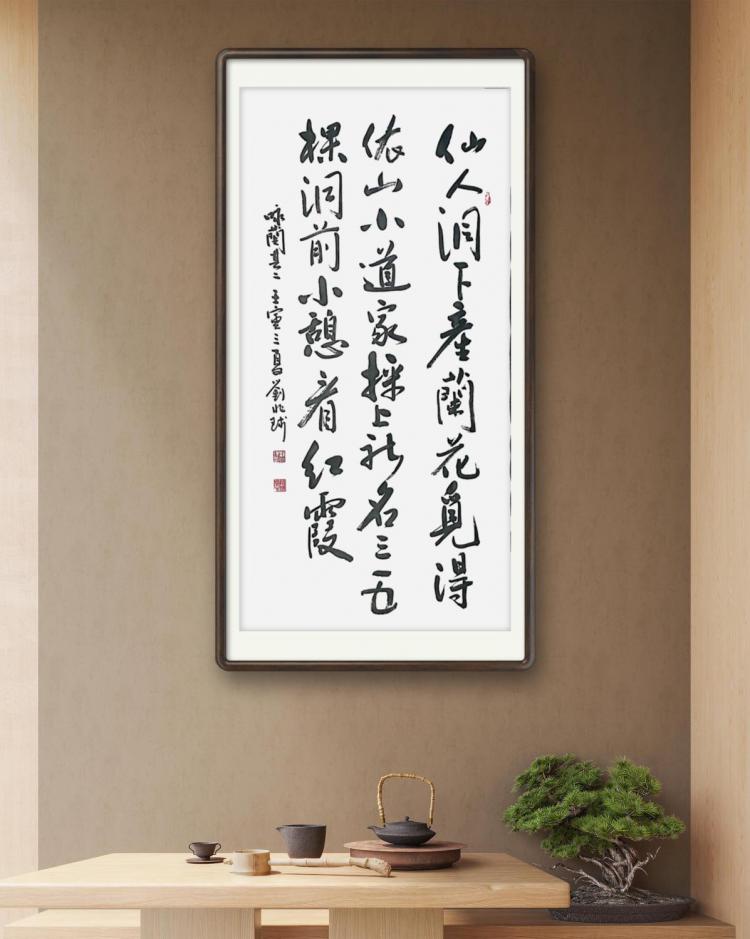 仙人洞下產蘭花覓得
依山小道家採上名三五
棵洞前小憩看红霞
咏蘭其二 壬寅三 劉